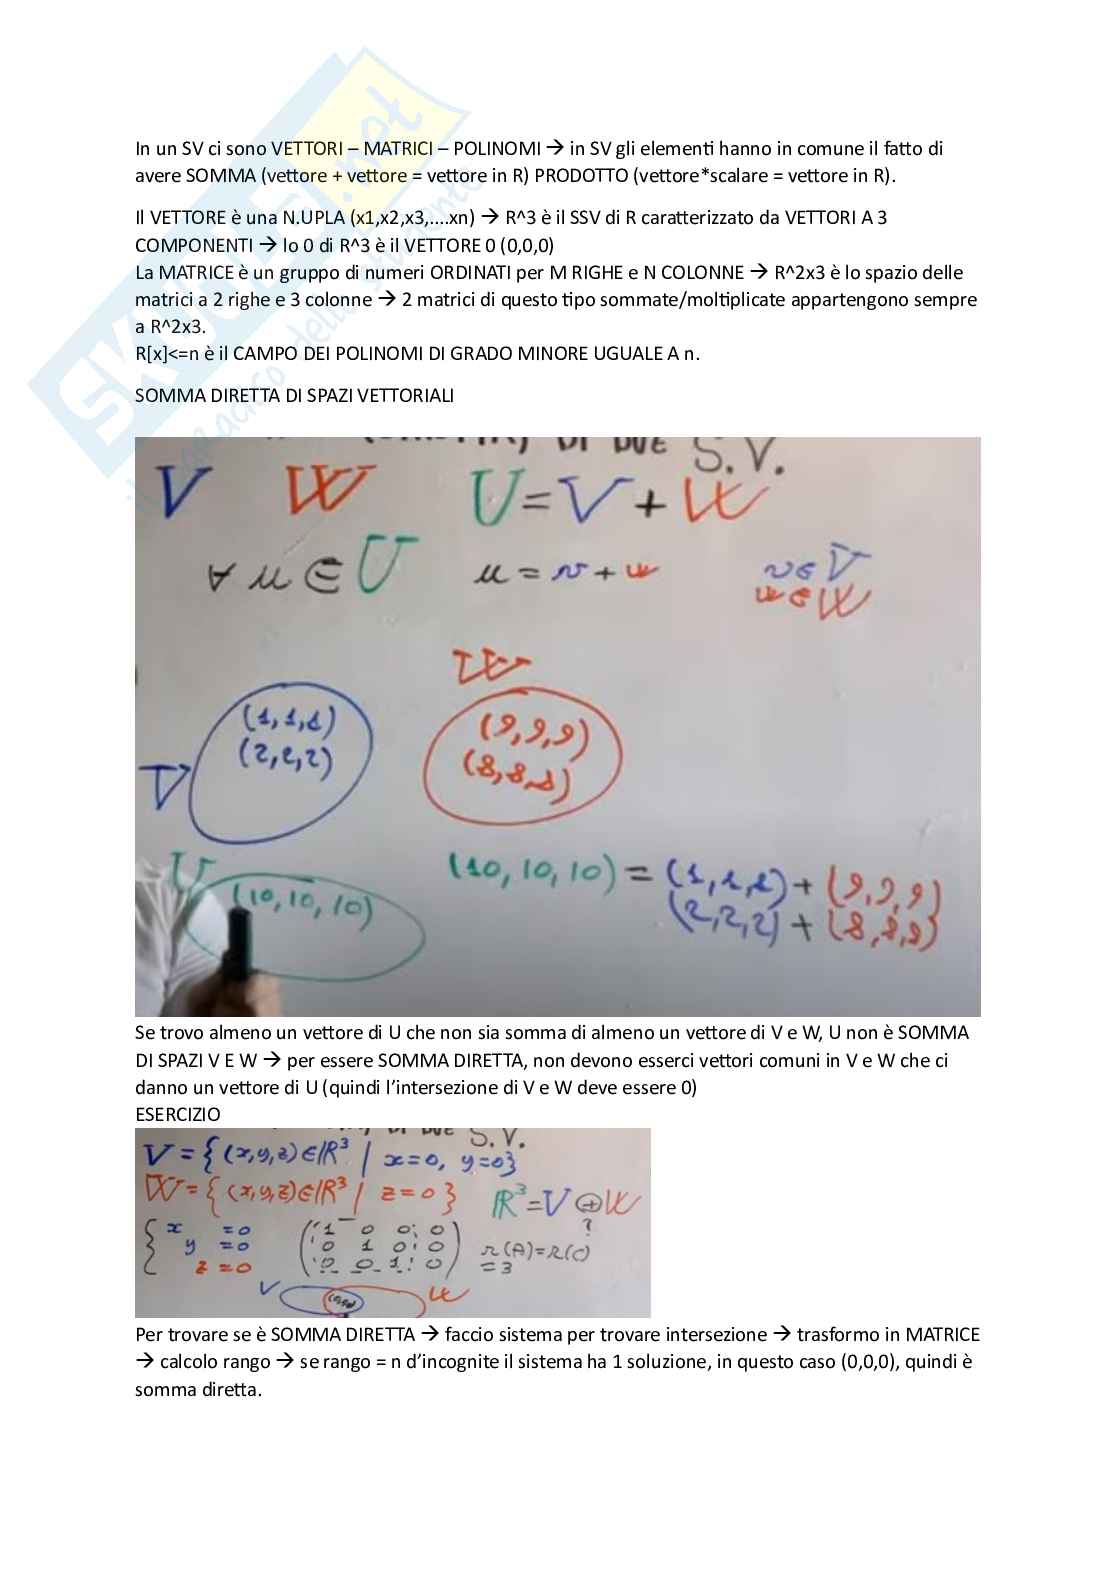 SKUOLA.net
In un SV ci sono VETTORI – MATRICI – POLINOMI → in SV gli elementi hanno in comune il fatto di
avere SOMMA (vettore + vettore = vettore in R) PRODOTTO (vettore*scalare = vettore in R).
Il VETTORE è una N.UPLA (x1,x2,x3,....xn) → R^3 è il SSV di R caratterizzato da VETTORI A 3
COMPONENTI → lo 0 di R^3 è il VETTORE 0 (0,0,0)
La MATRICE è un gruppo di numeri ORDINATI per M RIGHE e N COLONNE → R^2x3 è lo spazio delle
matrici a 2 righe e 3 colonne → 2 matrici di questo tipo sommate/moltiplicate appartengono sempre
a R^2x3.
R[x]<=n è il CAMPO DEI POLINOMI DI GRADO MINORE UGUALE A n.
SOMMA DIRETTA DI SPAZI VETTORIALI
DI DUE S.V.
V W U=V+W
∀ u ∈ U u = v + w v ∈ V
w ∈ W
W
(1,1,1) (9,9,9)
(2,2,2) (8,8,8)
V
U (10,10,10) (10,10,10) = (1,1,1) + (9,9,9)
(2,2,2) + (8,8,8)
Se trovo almeno un vettore di U che non sia somma di almeno un vettore di V e W, U non è SOMMA
DI SPAZI V E W → per essere SOMMA DIRETTA, non devono esserci vettori comuni in V e W che ci
danno un vettore di U (quindi l’intersezione di V e W deve essere 0)
ESERCIZIO
DI DUE S.V.
V = {(x,y,z)∈R³ | x=0, y=0}
W = {(x,y,z)∈R³ | z=0} R³=V⊕W
?
{ x =0 ( 1 0 0 ¦ 0
y =0 0 1 0 ¦ 0 r(A)=r(C)
z =0 0 0 1 ¦ 0 ) =3
V W
Per trovare se è SOMMA DIRETTA → faccio sistema per trovare intersezione → trasformo in MATRICE
→ calcolo rango → se rango = n d’incognite il sistema ha 1 soluzione, in questo caso (0,0,0), quindi è
somma diretta.